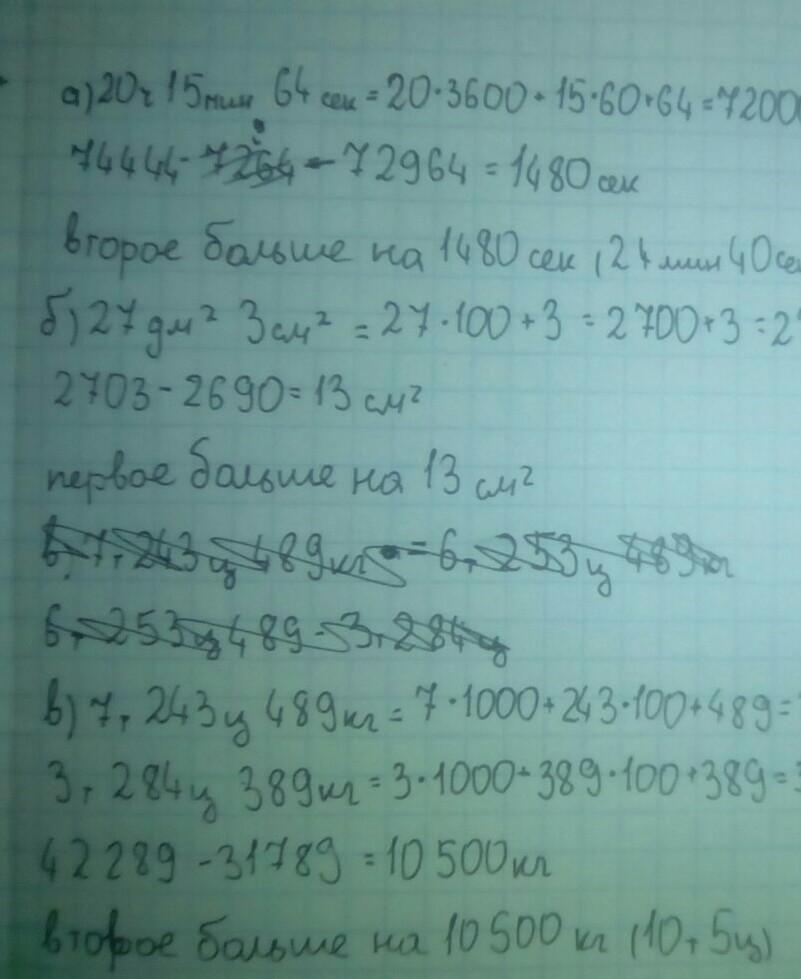 а) 20ч 15мин 64 сек = 20·3600 + 15·60+64 = 7200
74444 - 72964 = 1480 сек
второе больше на 1480 сек (24 мин 40 сек
б) 27 дм² 3 см² = 27·100 + 3 = 2700+3 = 2
2703 - 2690 = 13 см²
первое больше на 13 см²
7т 243ц 489кг = 6т 253ц 489кг
6т 253ц 489 - 3т 284ц
в) 7т 243ц 489кг = 7·1000+243·100+489=
3т 284ц 389кг = 3·1000+389·100+389=3
42289 - 31789 = 10500кг
второе больше на 10500 кг (10т 5ц)